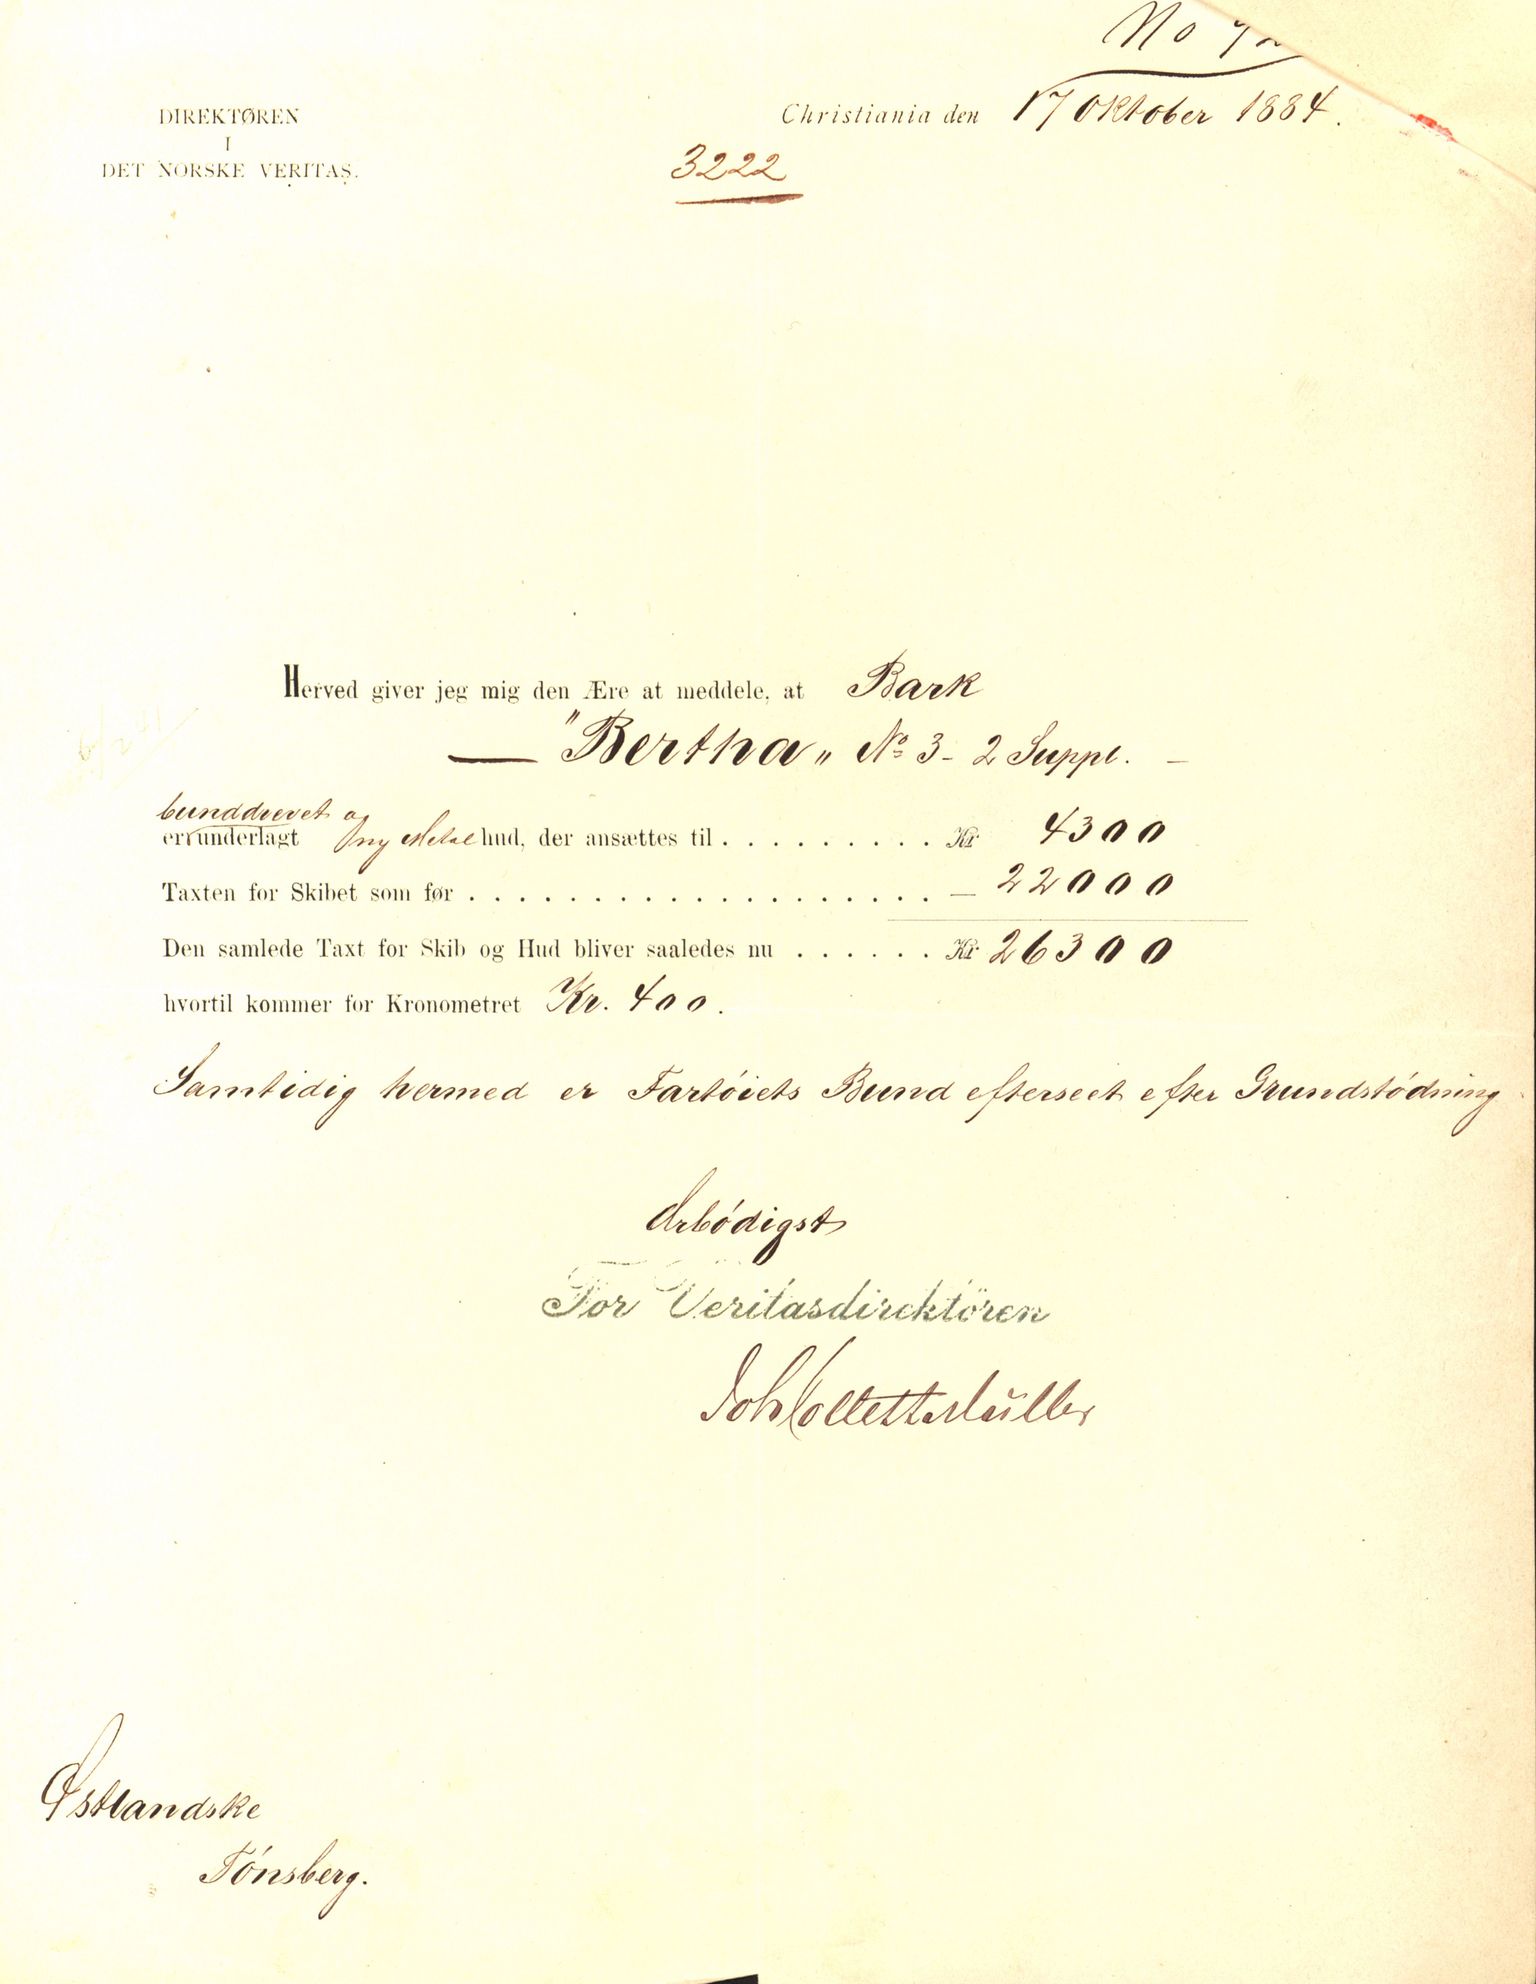 No
DIREKTØREN
I
DET NORSKE VERITAS.
Christiania den 17 Oktober 1884.
3222
Herved giver jeg mig den Ære at meddele, at Bark
— "Bertha" No 3 - 2 Suppl. —
bunddrevet og
er underlagt ny Metal hud, der ansættes til . . . . . . . . . Kr 4300
Taxten for Skibet som før . . . . . . . . . . . . . . . . . . . — 22000
Den samlede Taxt for Skib og Hud bliver saaledes nu . . . . . . Kr 26300
hvortil kommer for Kronometret Kr. 400.
Samtidig hermed er Fartöiets Bund efterseet efter Grundstödning
Ærbödigst
For Veritasdirektören
Joh Collett Müller
Østlandske
Tönsberg.